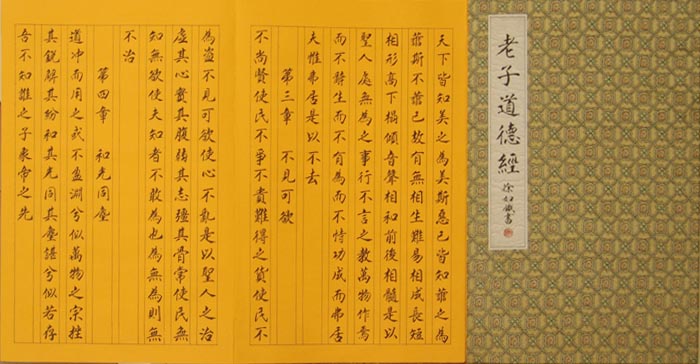 老子道德經
書
天下皆知美之為美斯惡已皆知善之為
善斯不善已故有無相生難易相成長短
相形高下相傾音聲相和前後相隨是以
聖人處無為之事行不言之教萬物作焉
而不辭生而不有為而不恃功成而弗居
夫惟弗居是以不去
第三章 不見可欲
不尚賢使民不爭不貴難得之貨使民不
為盜不見可欲使心不亂是以聖人之治
虛其心實其腹弱其志彊其骨常使民無
知無欲使夫知者不敢為也為無為則無
不治
第四章 和光同塵
道冲而用之或不盈淵兮似萬物之宗挫
其銳解其紛和其光同其塵湛兮似若存
吾不知誰之子象帝之先